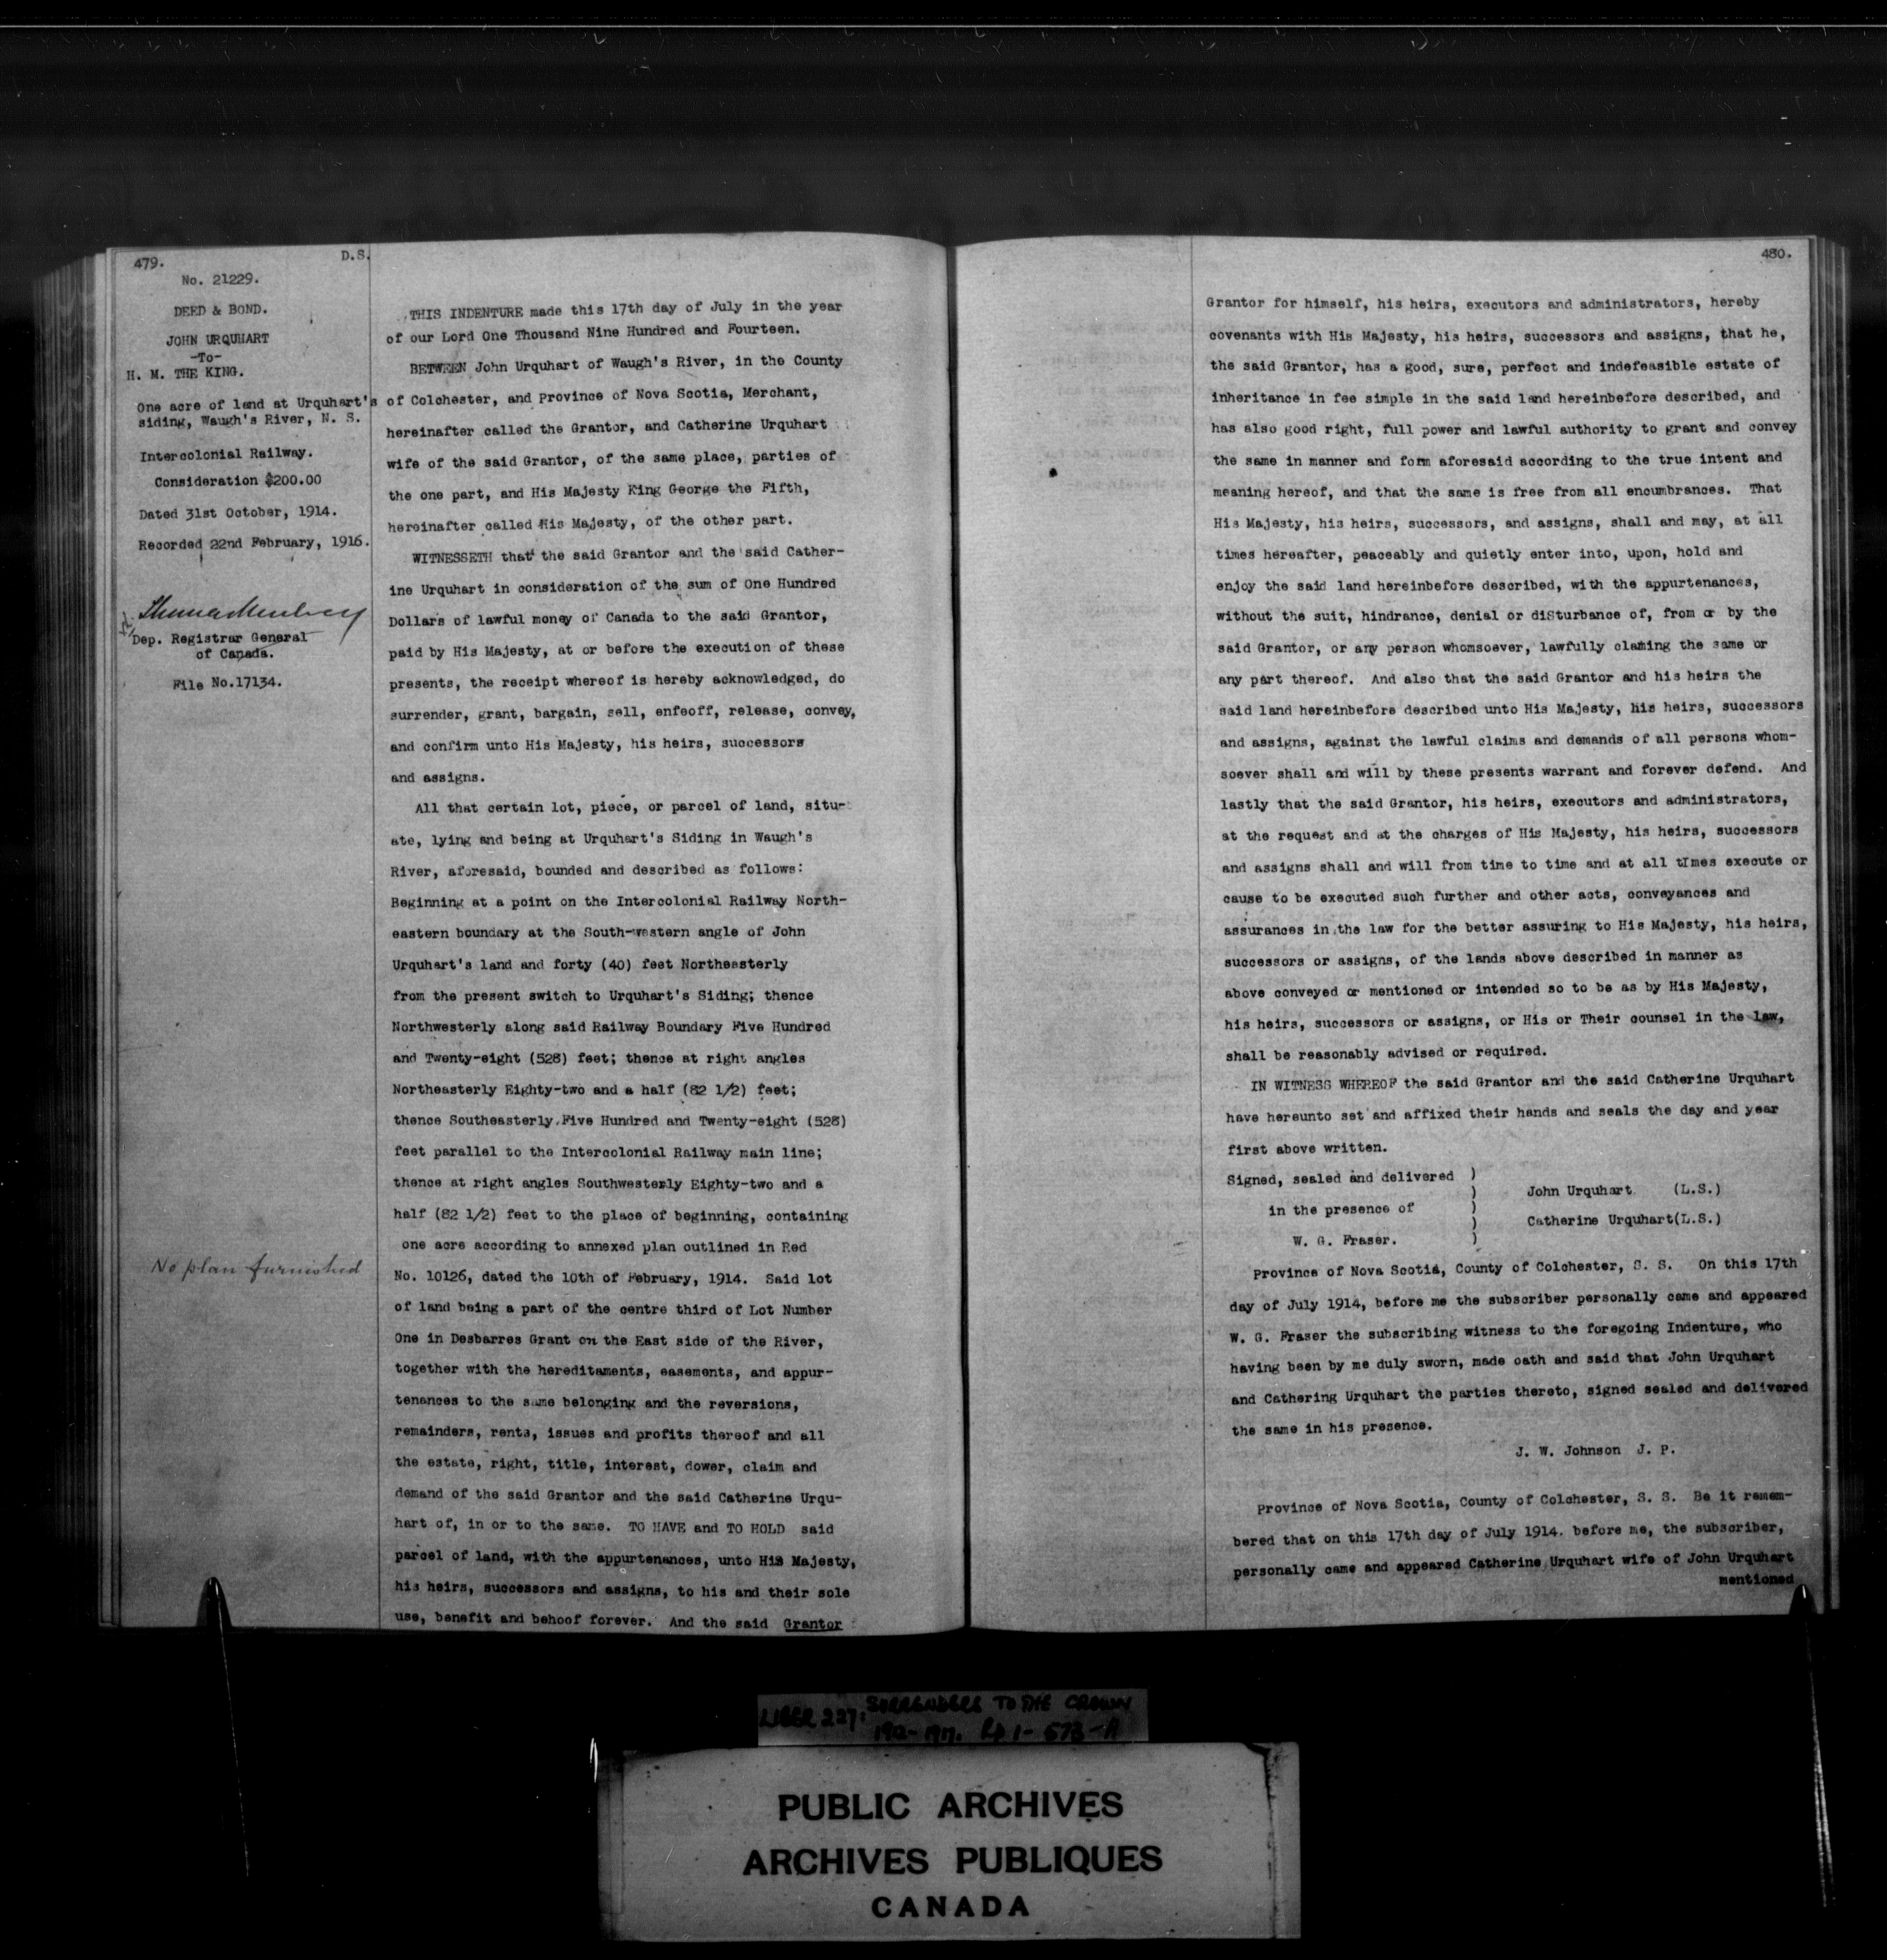 479.
D.S.
No. 21229.
DEED & BOND.
JOHN URQUHART
-To-
H. M. THE KING.
One acre of land at Urquhart's
siding, Waugh's River, N. S.
Intercolonial Railway.
Consideration $200.00
Dated 31st October, 1914.
Recorded 22nd February, 1916.
Dep. Registrar General
of Canada.
File No.17134.
No plan furnished
THIS INDENTURE made this 17th day of July in the year
of our Lord One Thousand Nine Hundred and Fourteen.
BETWEEN John Urquhart of Waugh's River, in the County
of Colchester, and Province of Nova Scotia, Merchant,
hereinafter called the Grantor, and Catherine Urquhart
wife of the said Grantor, of the same place, parties of
the one part, and His Majesty King George the Fifth,
hereinafter called His Majesty, of the other part.
WITNESSETH that the said Grantor and the said Cather-
ine Urquhart in consideration of the sum of One Hundred
Dollars of lawful money of Canada to the said Grantor,
paid by His Majesty, at or before the execution of these
presents, the receipt whereof is hereby acknowledged, do
surrender, grant, bargain, sell, enfeoff, release, convey,
and confirm unto His Majesty, his heirs, successors
and assigns.
All that certain lot, piece, or parcel of land, situ-
ate, lying and being at Urquhart's Siding in Waugh's
River, aforesaid, bounded and described as follows:
Beginning at a point on the Intercolonial Railway North-
eastern boundary at the South-western angle of John
Urquhart's land and forty (40) feet Northeasterly
from the present switch to Urquhart's Siding; thence
Northwesterly along said Railway Boundary Five Hundred
and Twenty-eight (528) feet; thence at right angles
Northeasterly Eighty-two and a half (82 1/2) feet;
thence Southeasterly Five Hundred and Twenty-eight (528)
feet parallel to the Intercolonial Railway main line;
thence at right angles Southwesterly Eighty-two and a
half (82 1/2) feet to the place of beginning, containing
one acre according to annexed plan outlined in Red
No. 10126, dated the 10th of February, 1914. Said lot
of land being a part of the centre third of Lot Number
One in Desbarres Grant on the East side of the River,
together with the hereditaments, easements, and appur-
tenances to the same belonging and the reversions,
remainders, rents, issues and profits thereof and all
the estate, right, title, interest, dower, claim and
demand of the said Grantor and the said Catherine Urqu-
hart of, in or to the same. TO HAVE and TO HOLD said
parcel of land, with the appurtenances, unto His Majesty,
his heirs, successors and assigns, to his and their sole
use, benefit and behoof forever. And the said Grantor
480.
Grantor for himself, his heirs, executors and administrators, hereby
covenants with His Majesty, his heirs, successors and assigns, that he,
the said Grantor, has a good, sure, perfect and indefeasible estate of
inheritance in fee simple in the said land hereinbefore described, and
has also good right, full power and lawful authority to grant and convey
the same in manner and form aforesaid according to the true intent and
meaning hereof, and that the same is free from all encumbrances. That
His Majesty, his heirs, successors, and assigns, shall and may, at all
times hereafter, peaceably and quietly enter into, upon, hold and
enjoy the said land hereinbefore described, with the appurtenances,
without the suit, hindrance, denial or diSturbance of, from or by the
said Grantor, or any person whomsoever, lawfully claming the same or
any part thereof. And also that the said Grantor and his heirs the
said land hereinbefore described unto His Majesty, his heirs, successors
and assigns, against the lawful claims and demands of all persons whom-
soever shall and will by these presents warrant and forever defend. And
lastly that the said Grantor, his heirs, executors and administrators,
at the request and at the charges of His Majesty, his heirs, successors
and assigns shall and will from time to time and at all tImes execute or
cause to be executed such further and other acts, conveyances and
assurances in the law for the better assuring to His Majesty, his heirs,
successors or assigns, of the lands above described in manner as
above conveyed or mentioned or intended so to be as by His Majesty,
his heirs, successors or assigns, or His or Their counsel in the law,
shall be reasonably advised or required.
IN WITNESS WHEREOF the said Grantor and the said Catherine Urquhart
have hereunto set and affixed their hands and seals the day and year
first above written.
Signed, sealed and delivered )
) John Urquhart (L.S.)
in the presence of )
) Catherine Urquhart(L.S.)
W. G. Fraser. )
Province of Nova Scotia, County of Colchester, S. S. On this 17th
day of July 1914, before me the subscriber personally came and appeared
W. G. Fraser the subscribing witness to the foregoing Indenture, who
having been by me duly sworn, made oath and said that John Urquhart
and Cathering Urquhart the parties thereto, signed sealed and delivered
the same in his presence.
J. W. Johnson J. P.
Province of Nova Scotia, County of Colchester, S. S. Be it remem-
bered that on this 17th day of July 1914. before me, the subscriber,
personally came and appeared Catherine Urquhart wife of John Urquhart
mentioned
LIBER 227: SURRENDERS TO THE CROWN
1912-1917. Pp 1-573-A
PUBLIC ARCHIVES
ARCHIVES PUBLIQUES
CANADA